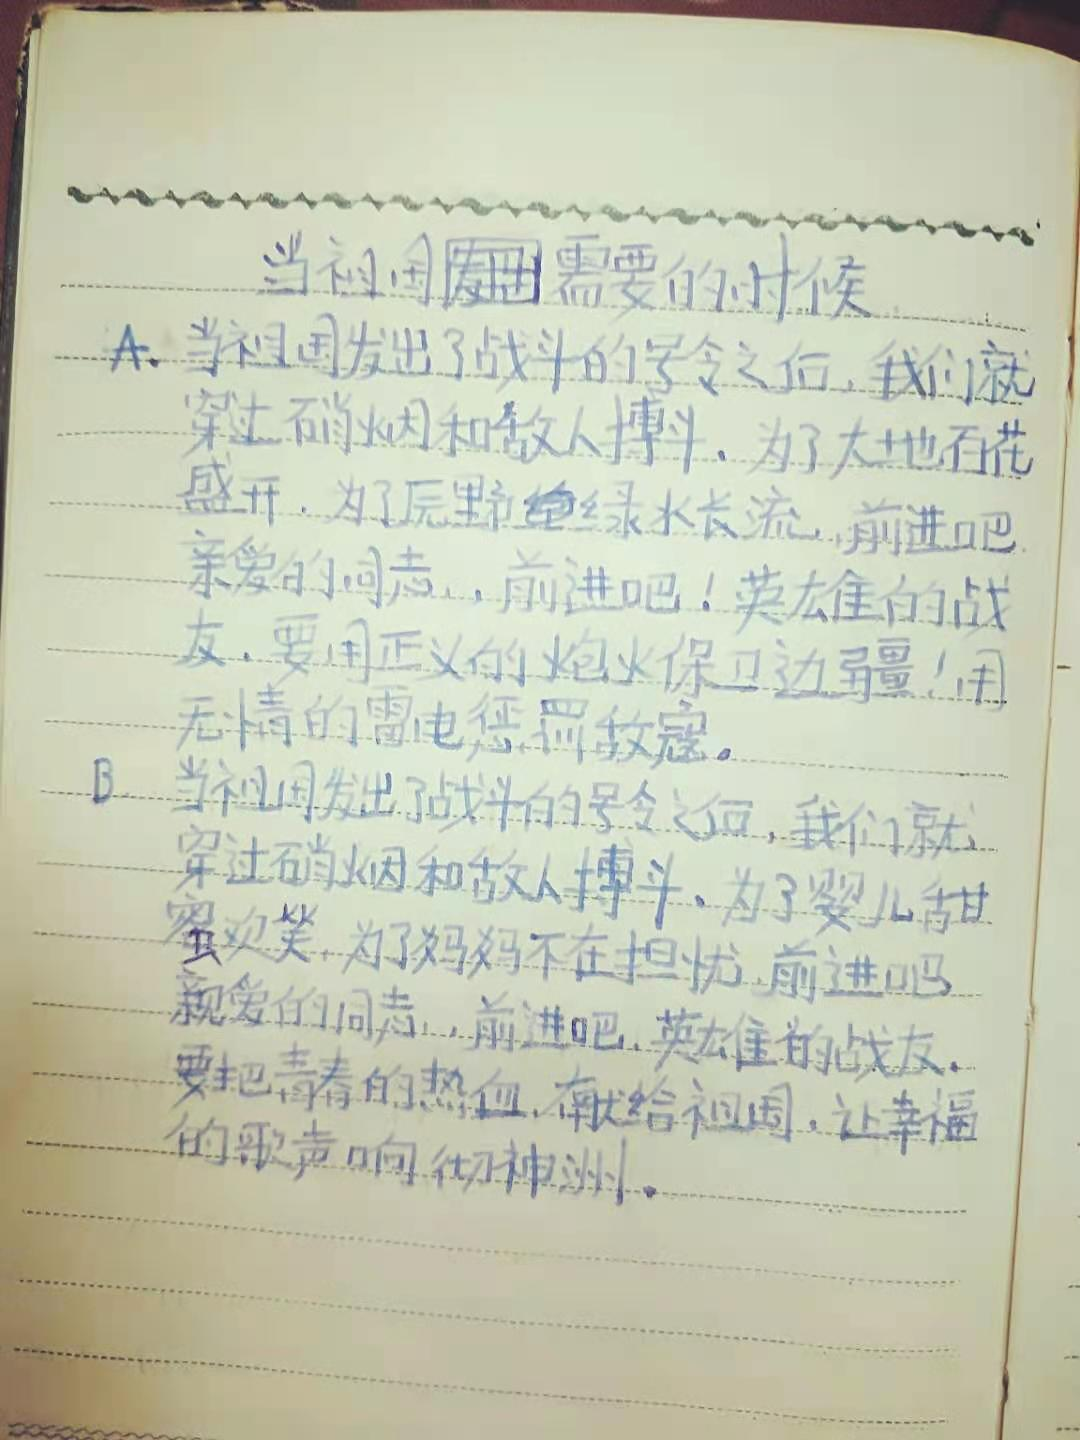 当祖国需要的时候
A. 当祖国发出了战斗的号令之后，我们就
穿过硝烟和敌人搏斗．为了大地百花
盛开．为了原野绿水长流，前进吧
亲爱的同志，前进吧！英雄的战
友．要用正义的炮火保卫边疆！用
无情的雷电惩罚敌寇。
B. 当祖国发出了战斗的号令之后，我们就
穿过硝烟和敌人搏斗．为了婴儿甜
蜜欢笑，为了妈妈不在担忧，前进吧
亲爱的同志，前进吧．英雄的战友．
要把青春的热血，献给祖国．让幸福
的歌声响彻神洲。